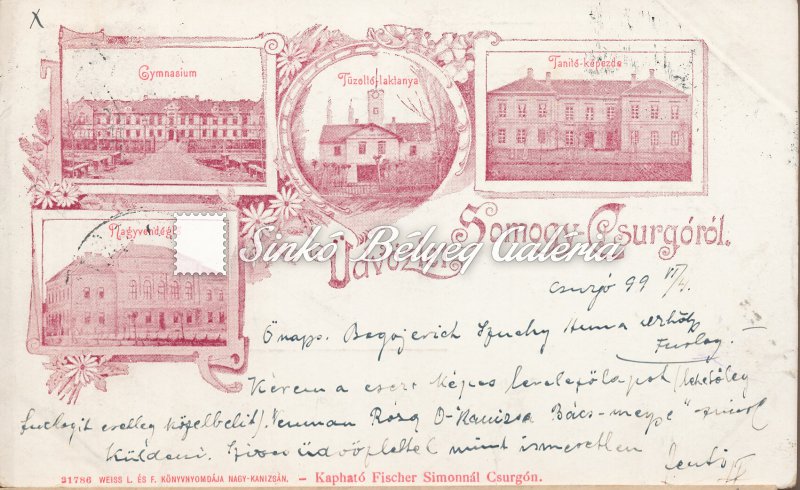 X
Gymnasium
Tűzoltó-laktanya
Tanító-képezde
Nagyvendégl
Üdvözlet Somogy-Csurgóról.
Sinkó Bélyeg Galéria
Csurgó 99 VI/4.
Önaps. Szuchy
Furlog.
Kérem a csere képes levelezőlapot (lehetőleg
furlogit esetleg közelbelit). Neuman Róza Ó-Kanizsa Bács-megye
küldeni. Szives üdvözlettel mint ismeretlen
21786 WEISS L. ÉS F. KÖNYVNYOMDÁJA NAGY-KANIZSÁN. – Kapható Fischer Simonnál Csurgón.